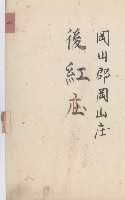 岡山郡岡山庄
後紅庄